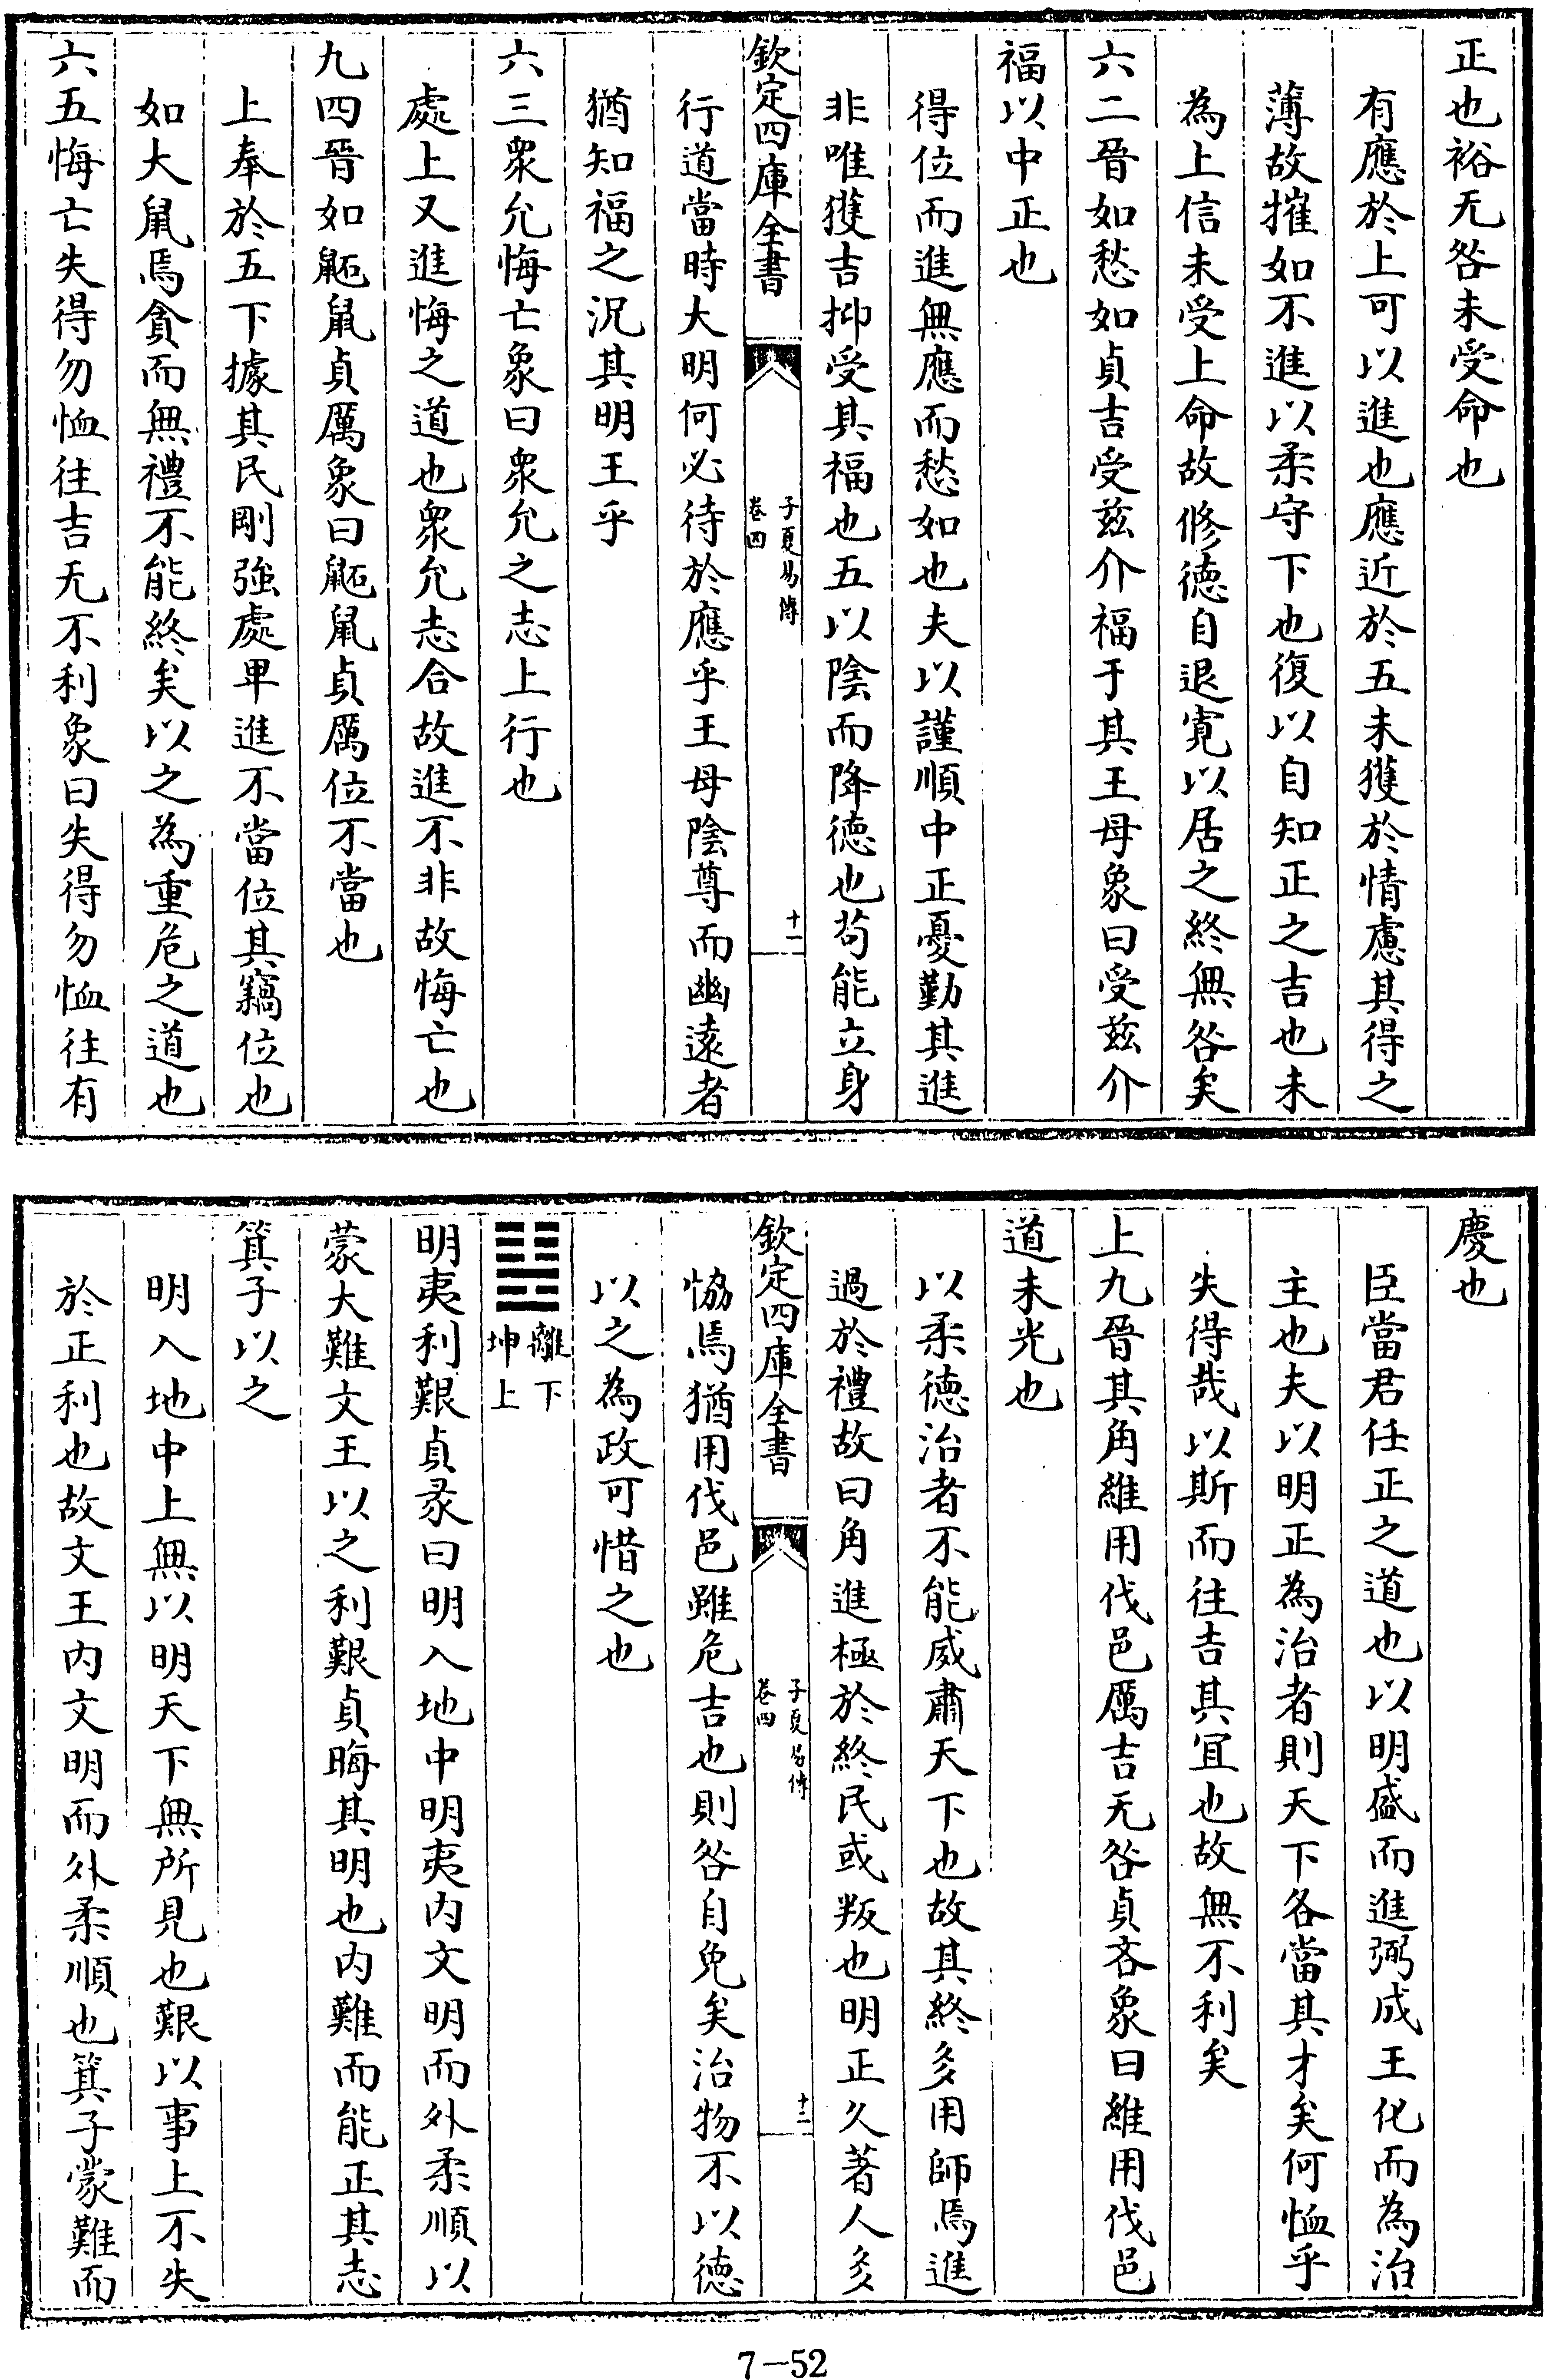 正也裕无咎未受命也
有應於上可以進也應近於五未獲於情慮其得之
薄故摧如不進以柔守下也復以自知正之吉也未
為上信未受上命故修徳自退寛以居之終無咎矣
六二晉如愁如貞吉受兹介福于其王母象曰受兹介
福以中正也
得位而進無應而愁如也夫以謹順中正憂勤其進
非唯獲吉抑受其福也五以陰而降徳也苟能立身
欽定四庫全書
子夏易傳
卷四
十一
行道當時大明何必待於應乎王母陰尊而幽遠者
猶知福之況其明王乎
六三衆允悔亡象曰衆允之志上行也
處上又進悔之道也衆允志合故進不非故悔亡也
九四晉如鼫鼠貞厲象曰鼫鼠貞厲位不當也
上奉於五下據其民剛強處卑進不當位其竊位也
如大鼠焉貪而無禮不能終矣以之為重危之道也
六五悔亡失得勿恤往吉无不利象曰失得勿恤往有
慶也
臣當君任正之道也以明盛而進弼成王化而為治
主也夫以明正為治者則天下各當其才矣何恤乎
失得哉以斯而往吉其宜也故無不利矣
上九晉其角維用伐邑厲吉无咎貞吝象曰維用伐邑
道未光也
以柔徳治者不能威肅天下也故其終多用師焉進
過於禮故曰角進極於終民或叛也明正久著人多
欽定四庫全書
子夏易傳
卷四
十二
恊焉猶用伐邑雖危吉也則咎自免矣治物不以徳
以之為政可惜之也
䷣
離下
坤上
明夷利艱貞彖曰明入地中明夷内文明而外柔順以
蒙大難文王以之利艱貞晦其明也内難而能正其志
箕子以之
明入地中上無以明天下無所見也艱以事上不失
於正利也故文王内文明而外柔順也箕子蒙難而
7-52